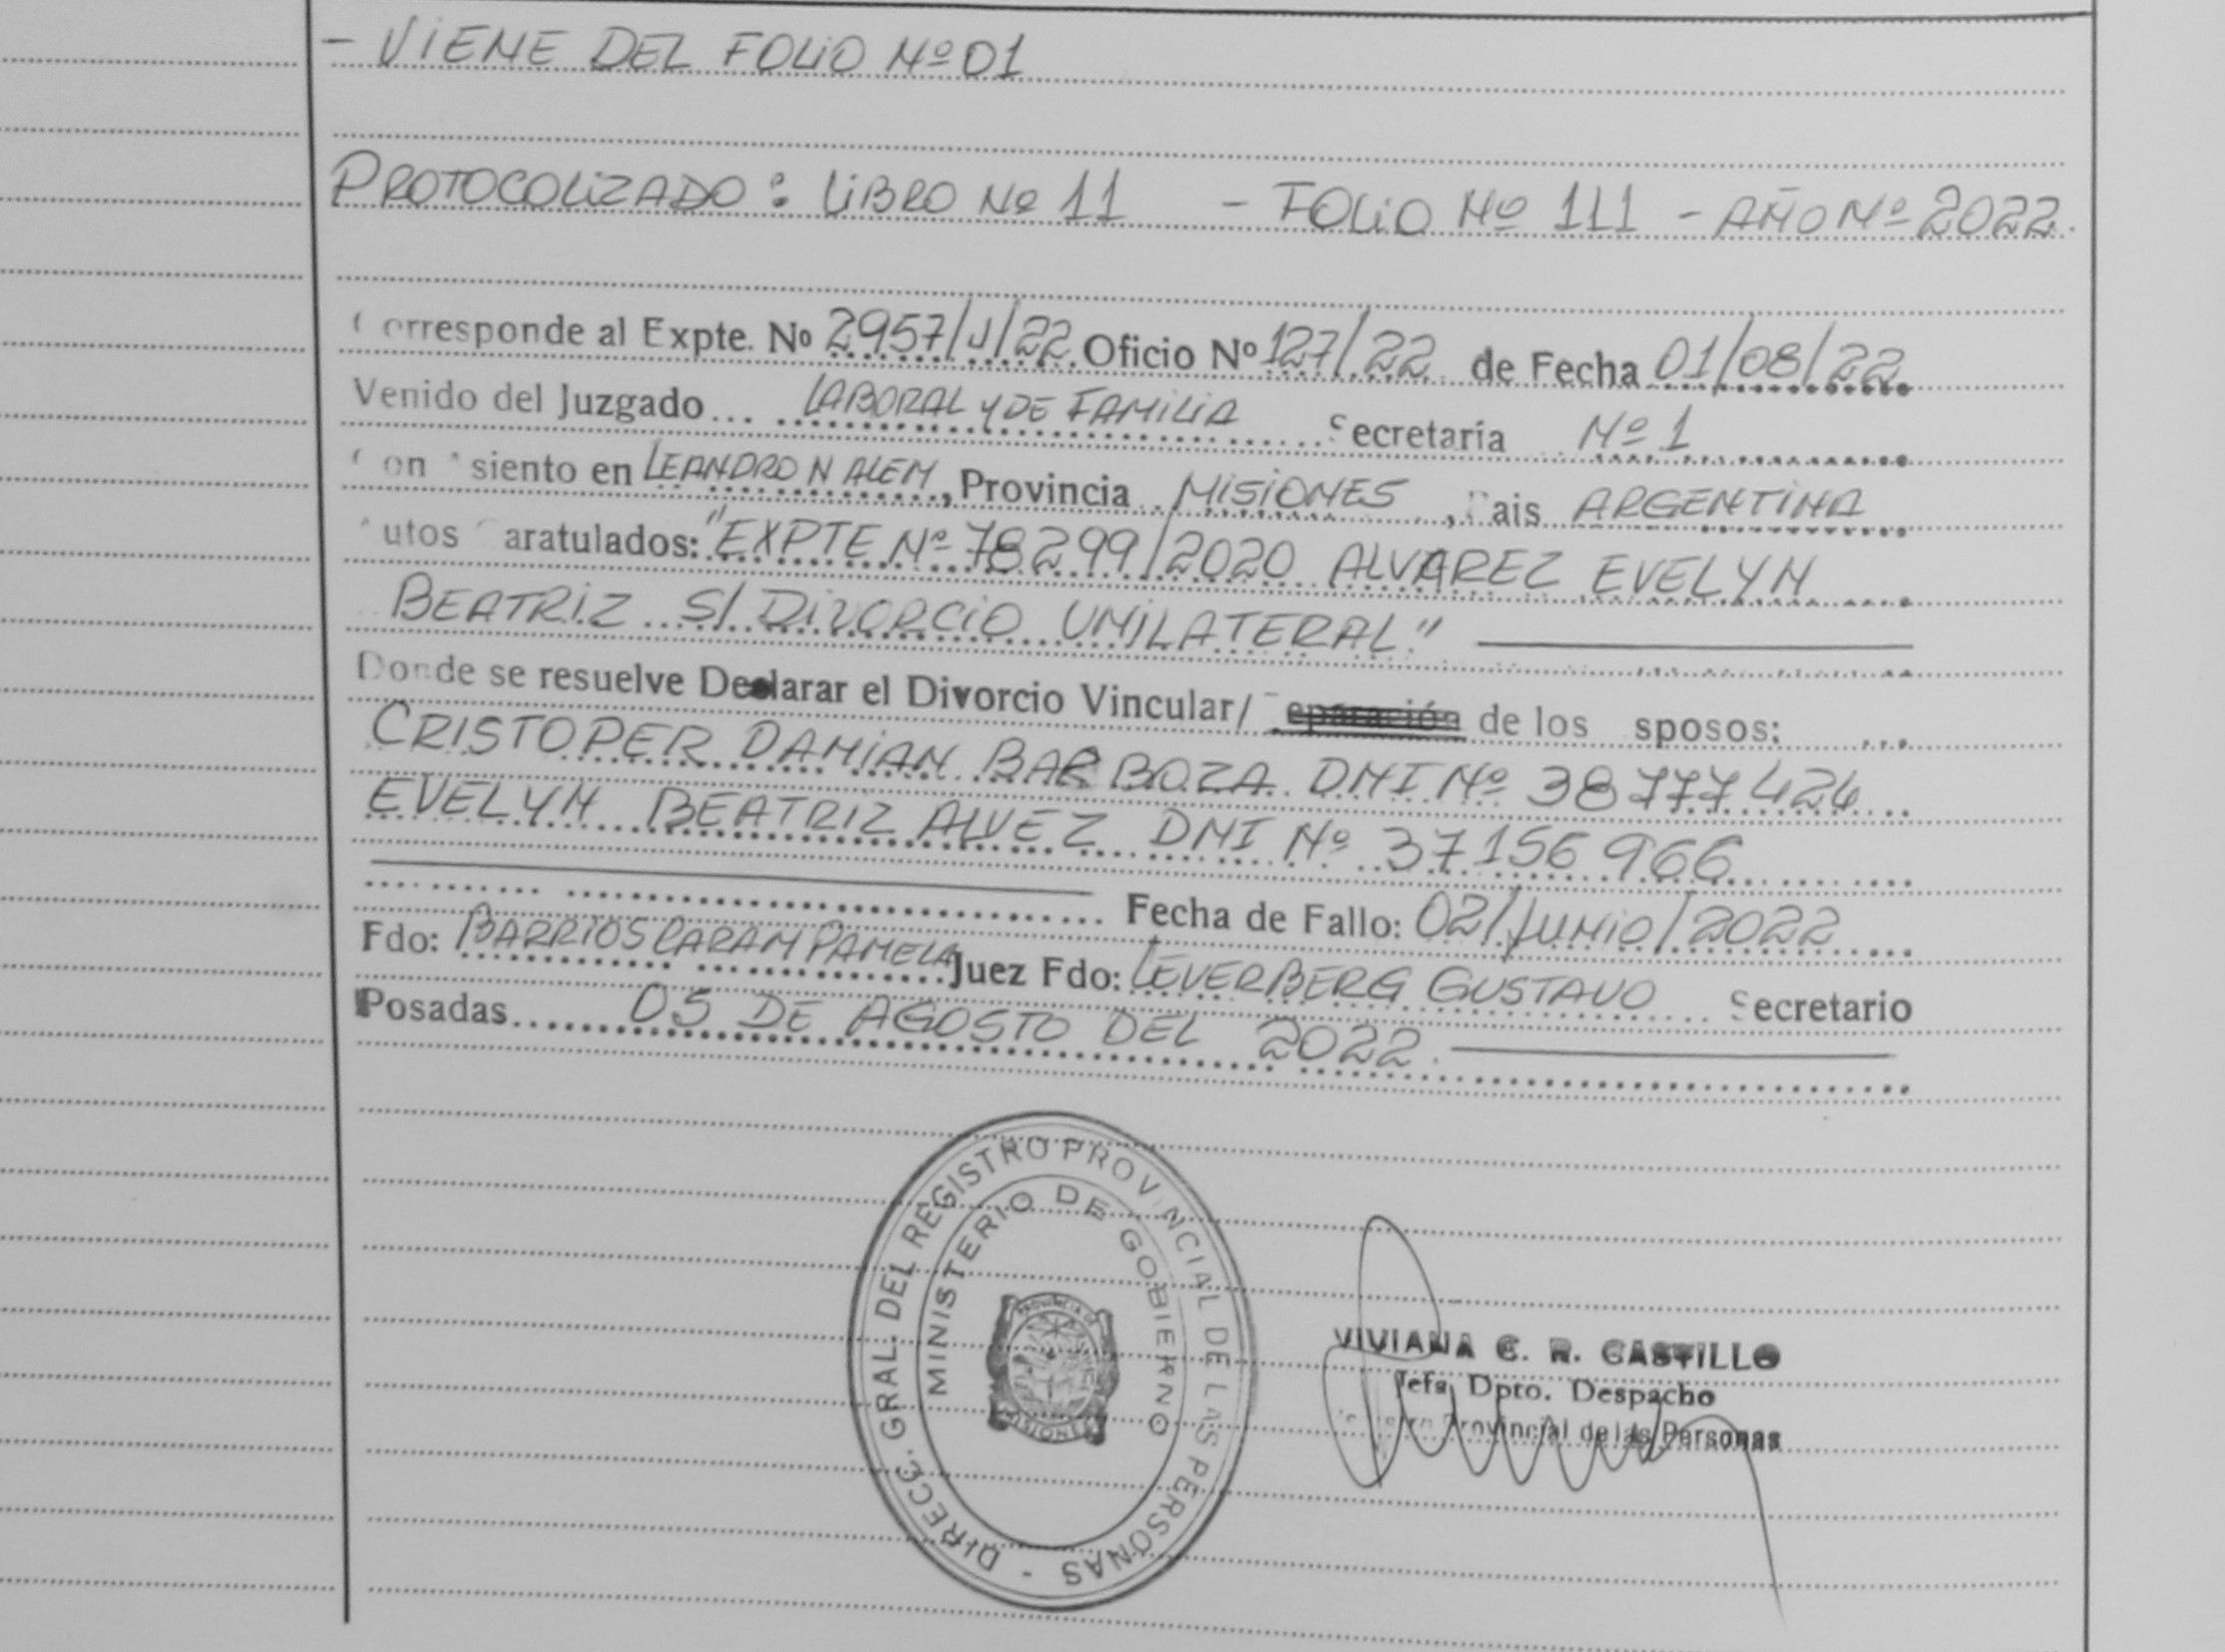 - VIENE DEL FOLIO Nº 01
PROTOCOLIZADO: LIBRO Nº 11 - FOLIO Nº 111 - AÑO Nº 2022.
Corresponde al Expte. Nº 2957/J/22 Oficio Nº 127/22 de Fecha 01/08/22
Venido del Juzgado... LABORAL Y DE FAMILIA Secretaría Nº 1
Con Asiento en LEANDRO N ALEM, Provincia MISIONES, Pais ARGENTINA
Autos Caratulados: "EXPTE Nº 78299/2020 ALVAREZ EVELYN
BEATRIZ S/ DIVORCIO UNILATERAL"
Donde se resuelve Declarar el Divorcio Vincular/ Separación de los esposos:
CRISTOPER DAMIAN BARBOZA DNI Nº 38777424
EVELYN BEATRIZ ALVEZ DNI Nº 37156966
Fecha de Fallo: 02/JUNIO/2022
Fdo: BARRIOS CARAM PAMELA Juez Fdo: LEVERBERG GUSTAVO Secretario
Posadas 05 DE AGOSTO DEL 2022.
DIRECC. GRAL. DEL REGISTRO PROVINCIAL DE LAS PERSONAS -
MINISTERIO DE GOBIERNO
PROVINCIA DE
MISIONES
VIVIANA C. R. CASTILLO
Jefa Dpto. Despacho
Provincial de las Personas